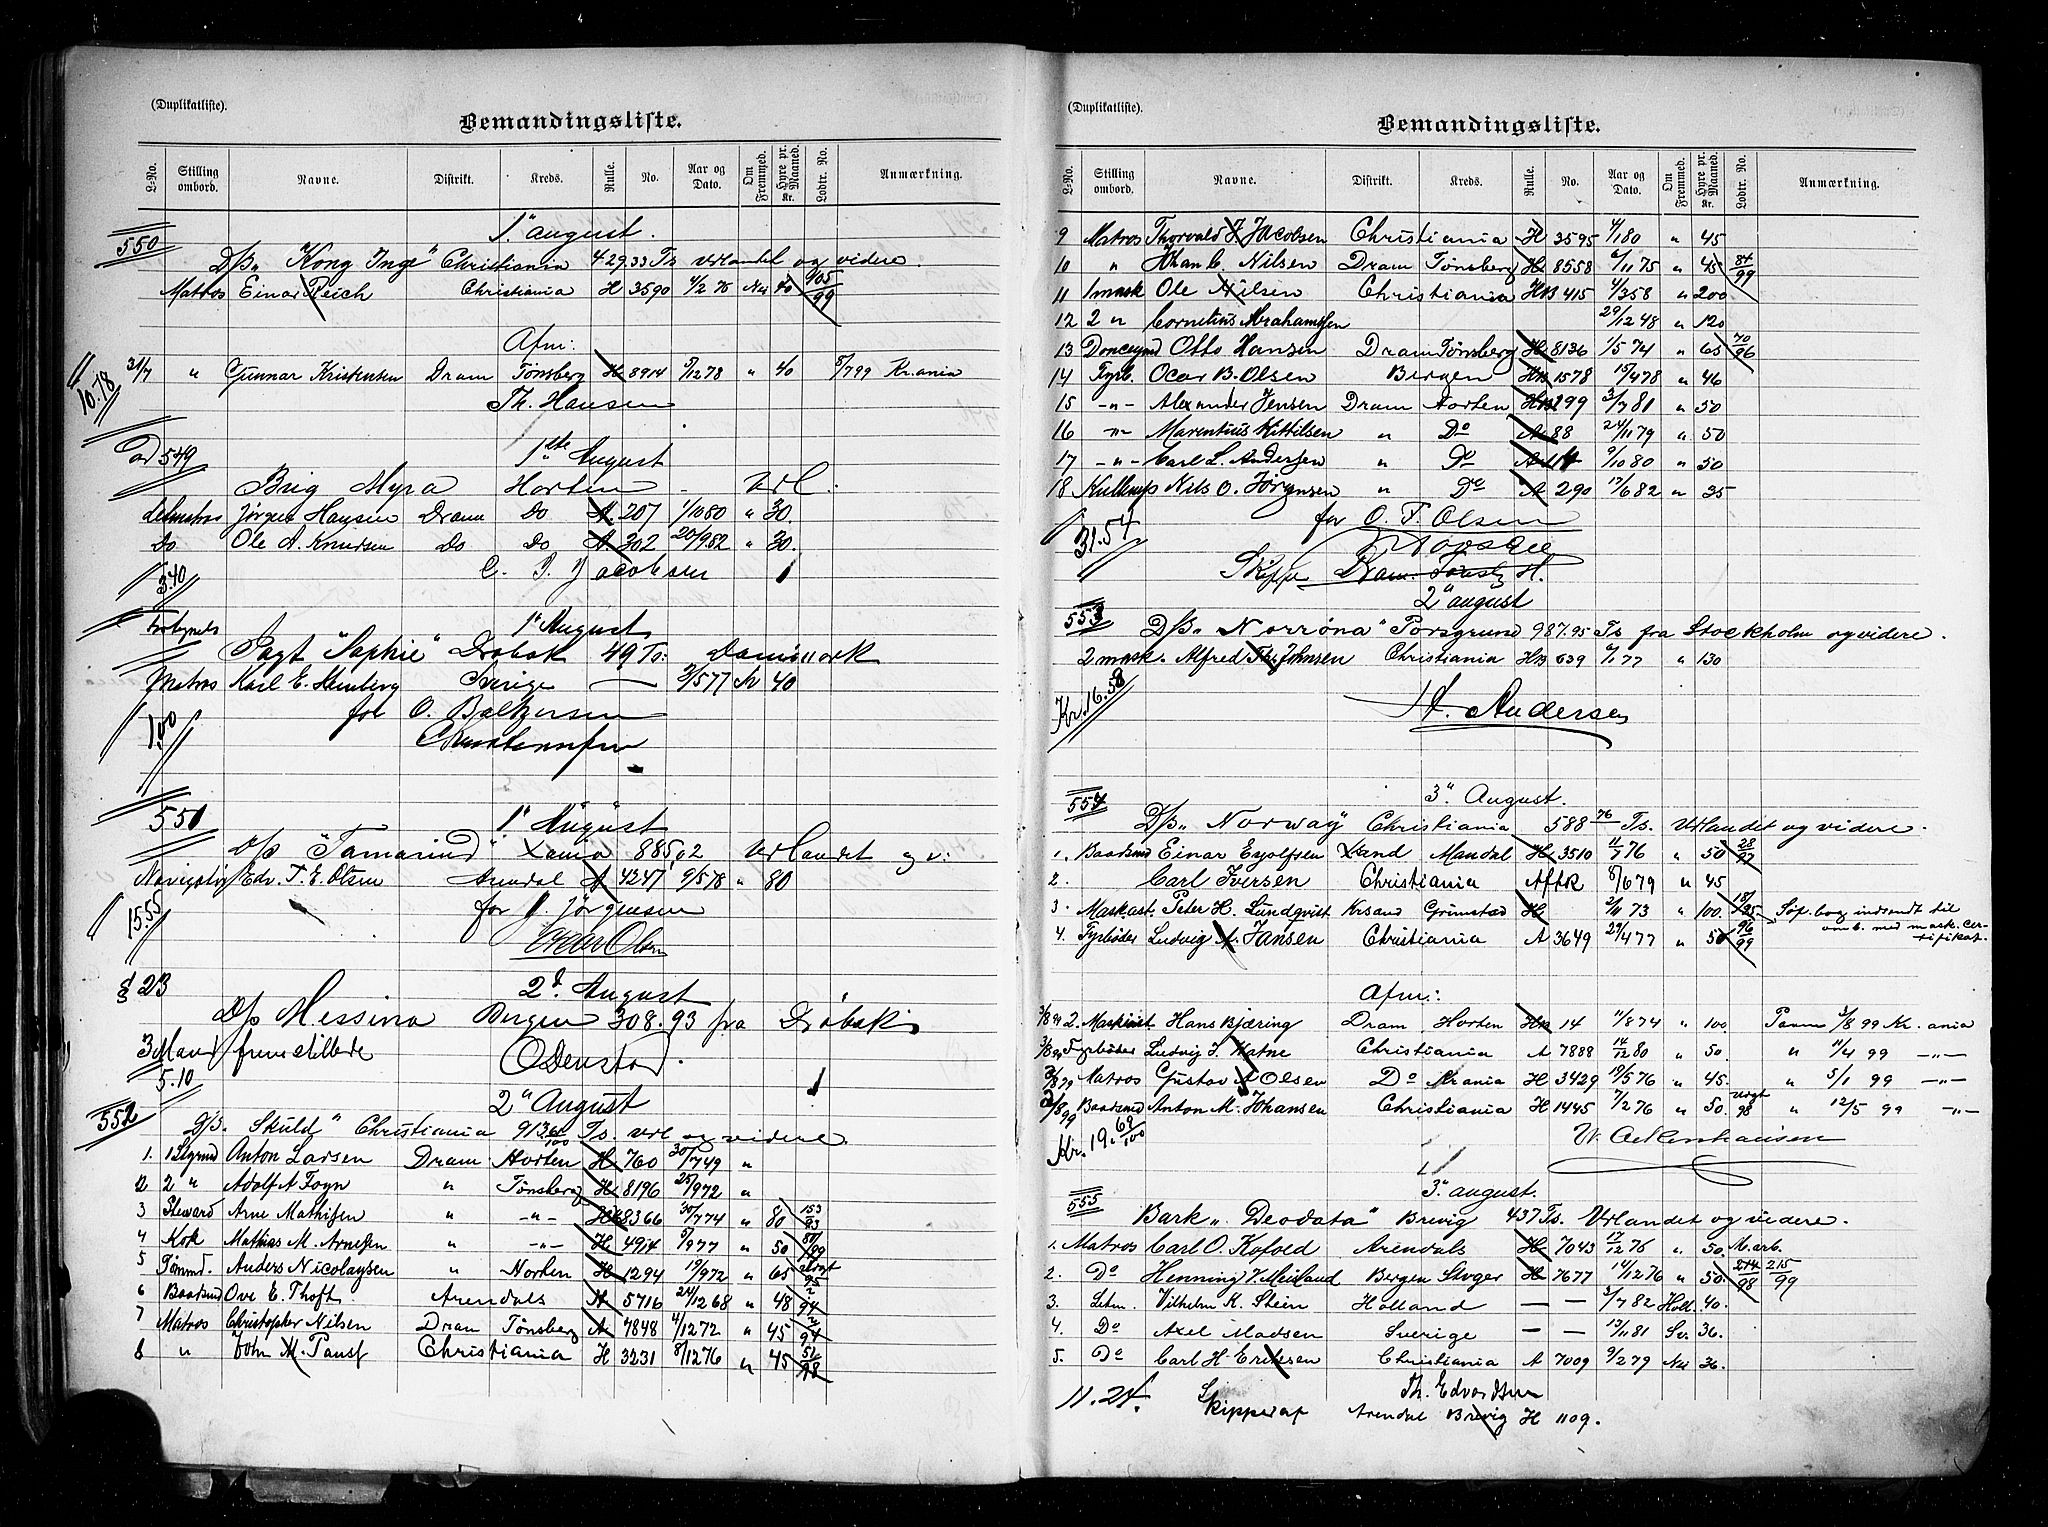 (Duplikatliste).
Bemandingsliste.
L.-No. Stilling ombord. Navne. Distrikt. Kreds. Rulle. No. Aar og Dato. Om Fremmed. Hyre pr. Maaned. Kr. Lodtr. No. Anmærkning.
550 1" august.
D/S „Kong Inge" Christiania 429.33 Ts Udlandet og videre.
Matros Einar Reich Christiania H 3590 4/2 76 40 105/99
Afm:
31/7 " Gunnar Kristensen Dram Tønsberg H 8914 5/12 78 " 40 8/7 99 Kr.ania
10.78 Th. Hansen
549 1ste August
Brig Myra Horten Udl.
Letmatros Jørgen Hansen Dram Do A 207 1/10 80 " 30.
Do Ole A. Knudsen Do Do A 302 20/9 82 " 30.
3.40 C. J. Jacobsen
1" August
Jagt "Sophie" Drøbak 49 Ts: Danmark
Matros Karl E. Heinberg Sverige — 2/5 77 40
100 for O. Baltzersen
551 1" August
D/S "Tamarind" Xania 885.02 Udlandet og v:
Edv. T. E. Olsen Arendal A 4247 9/5 78 " 80
15.55 for J. Jørgensen
Olsen
§ 23 2d August
D/S Messina Bergen 308.93 fra Drøbak
3 Mand fremstillede O Denstad.
5.10
552 2" August
D/S. Skuld" Christiania 913 61/100 Ts. Udl og videre
1. 1 Styrmd Anton Larsen Dram Horten H 760 30/7 49 "
2 2 " Adolf A Foyn " Tønsberg H 8196 25/9 72 "
3 Steward Arne Mathisen " -"- H 8366 30/7 74 " 80 153/93
4 Kok Mathias M. Arnesen " -"- H 4914 5/9 77 " 50 80/99
5 Tømmd. Anders Nicolaysen " Horten H 1294 19/9 72 " 65 udygt 95
6 Baadsmd Ove E. Thoft. Arendals A 5716 24/12 68 " 48 2/94
7 Matros Christopher Nilsen Dram Tønsberg A 7848 4/12 72 " 45
8 " John M. Paust Christiania H 3231 8/12 76 " 45 51/98
(Duplikatliste).
Bemandingsliste.
L.-No. Stilling ombord. Navne. Distrikt. Kreds. Rulle. No. Aar og Dato. Om Fremmed. Hyre pr. Maaned. Kr. Lodtr. No. Anmærkning.
9 Matros Thorvald J. Jacobsen Christiania H 3595 4/1 80 " 45
10 " Johan C. Nilsen Dram Tønsberg H 8558 6/11 75 " 45 84/99
11 1 mask Ole Nilsen Christiania HB 415 4/3 58 " 200
12 2 " Cornelius Abrahamsen 29/12 48 " 120
13 Otto Hansen Dram Tønsberg H 8136 1/5 74 " 65 70/96
14 Fyrb. Oscar B. Olsen Bergen HB 1578 15/4 78 " 46
15 -"- Alexander Jensen Dram Horten HB 299 3/7 81 " 50
16 -"- Marentius Kittilsen " Do A 88 24/11 79 " 50
17 -"- Carl L. Andersen " Do A 14 9/10 80 " 50
18 Kullemp Nils O. Jørgensen " Do A 290 17/6 82 " 35
31.54 for O. T. Olsen
Skipp. Dram. Tønsb H.
553 2" august
D/S „Norröna" Porsgrund 987.95 Ts fra Stockholm og videre.
2 mask. Alfred Johnsen Christiania HB 639 6/1 77 " 130
Kr. 16.58 H. Andersen
554 3" August.
D/S „Norway" Christiania 588 76 Ts. Udlandet og videre.
1. Baadsmd Einar Eyolfsen Xsand Mandal H 3510 11/7 76 " 50 28/97
2. Carl Iversen Christiania Aftk 8/6 79 " 45
3. Mask.ast. Peter H. Lundqvist Krsand Grimstad H 2/11 73 " 100. 18/95 Søf. bog indsendt til
omb. med mask. cer-
tifikat.
4. Fyrbøder Ludvig A. Jansen Christiania A 3649 29/4 77 " 50 96/99
Afm:
3/8 99 2. Maskinist Hans Bjæring Dram Horten HB 14 11/8 74 " 100 Paam 3/8 99 Kr.ania
3/8 99 Fyrbøder Ludvig J. Hatne Christiania A 7888 14/12 80 " 50. " 11/4 99 -"-
3/8 99 Matros Gustav A Olsen Do Krania H 3429 19/5 76 " 45. " 5/1 99 -"-
3/8 99 Baadsmd Anton M. Johansen Christiania H 1445 7/2 76 " 50. udygt 98 " 12/5 99 -"-
Kr. 19.69/100 W. Ackenhausen
555 3" august.
Bark „Deodata" Brevig 437 Ts. Udlandet og videre.
1. Matros Carl O. Kofoed Arendals H 7043 17/12 76 " 50. M.arb.
2. Do Henning J. Meiland Bergen Stvger H 7677 14/12 76 " 50. 214/98 215/99
3. Letm. Vilhelm K. Stein Holland — — 3/7 82 Holl. 40.
4. Do Axel Madsen Sverige — — 13/11 81 Sv. 36.
5. Do Carl H. Eriksen Christiania A 7009 9/2 79 36.
11.24. Skipper af Th. Edvardsen
Arendal Brevig H 1109.